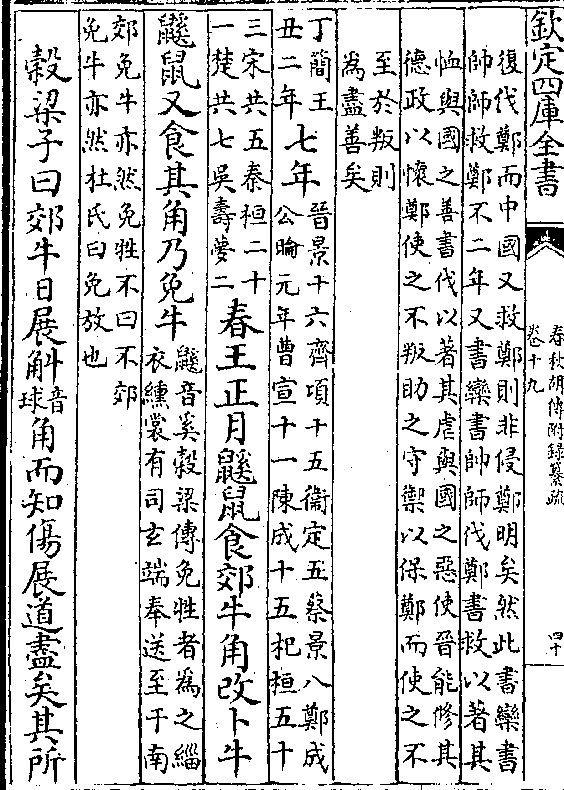 欽定四庫全書
春秋胡傳附録纂疏
卷十九
四十
復伐鄭而中國又救鄭則非侵鄭明矣然此書欒書
帥師救鄭不二年又書欒書帥師伐鄭書救以著其
恤與國之善書伐以著其虐與國之惡使晉能修其
德政以懷鄭使之不叛助之守禦以保鄭而使之不
至於叛則
為盡善矣
丁簡王
丑二年
七年
晉景十六齊頃十五衞定五蔡景八鄭成
公睔元年曹宣十一陳成十五杞桓五十
三宋共五秦桓二十
一楚共七吳壽夢二
春王正月鼷鼠食郊牛角改卜牛
鼷鼠又食其角乃免牛
鼷音奚穀梁傳免牲者為之緇
衣纁裳有司玄端奉送至于南
郊免牛亦然免牲不曰不郊
免牛亦然杜氏曰免放也
穀梁子曰郊牛日展斛
音
球
角而知傷展道盡矣其所